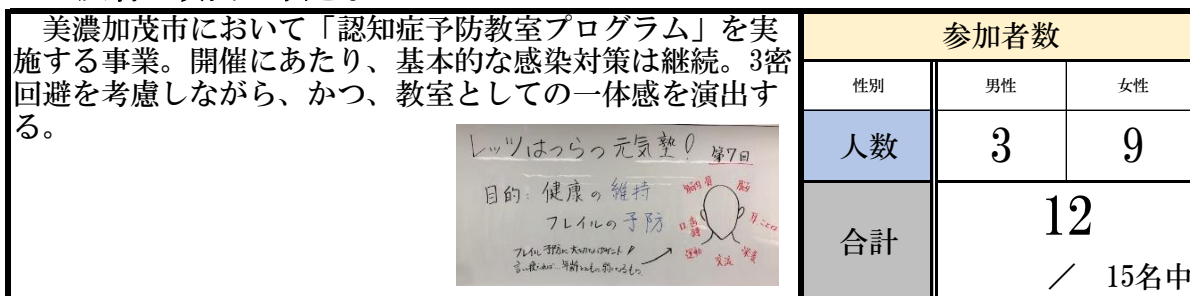 美濃加茂市において「認知症予防教室プログラム」を実
施する事業。開催にあたり、基本的な感染対策は継続。3密
回避を考慮しながら、かつ、教室としての一体感を演出す
る。
レッツはつらつ元気塾! 第7回
目的:健康の維持
フレイルの予防
脳
運動
交流
栄養
参加者数
性別 男性 女性
人数 3 9
合計 12
/ 15名中